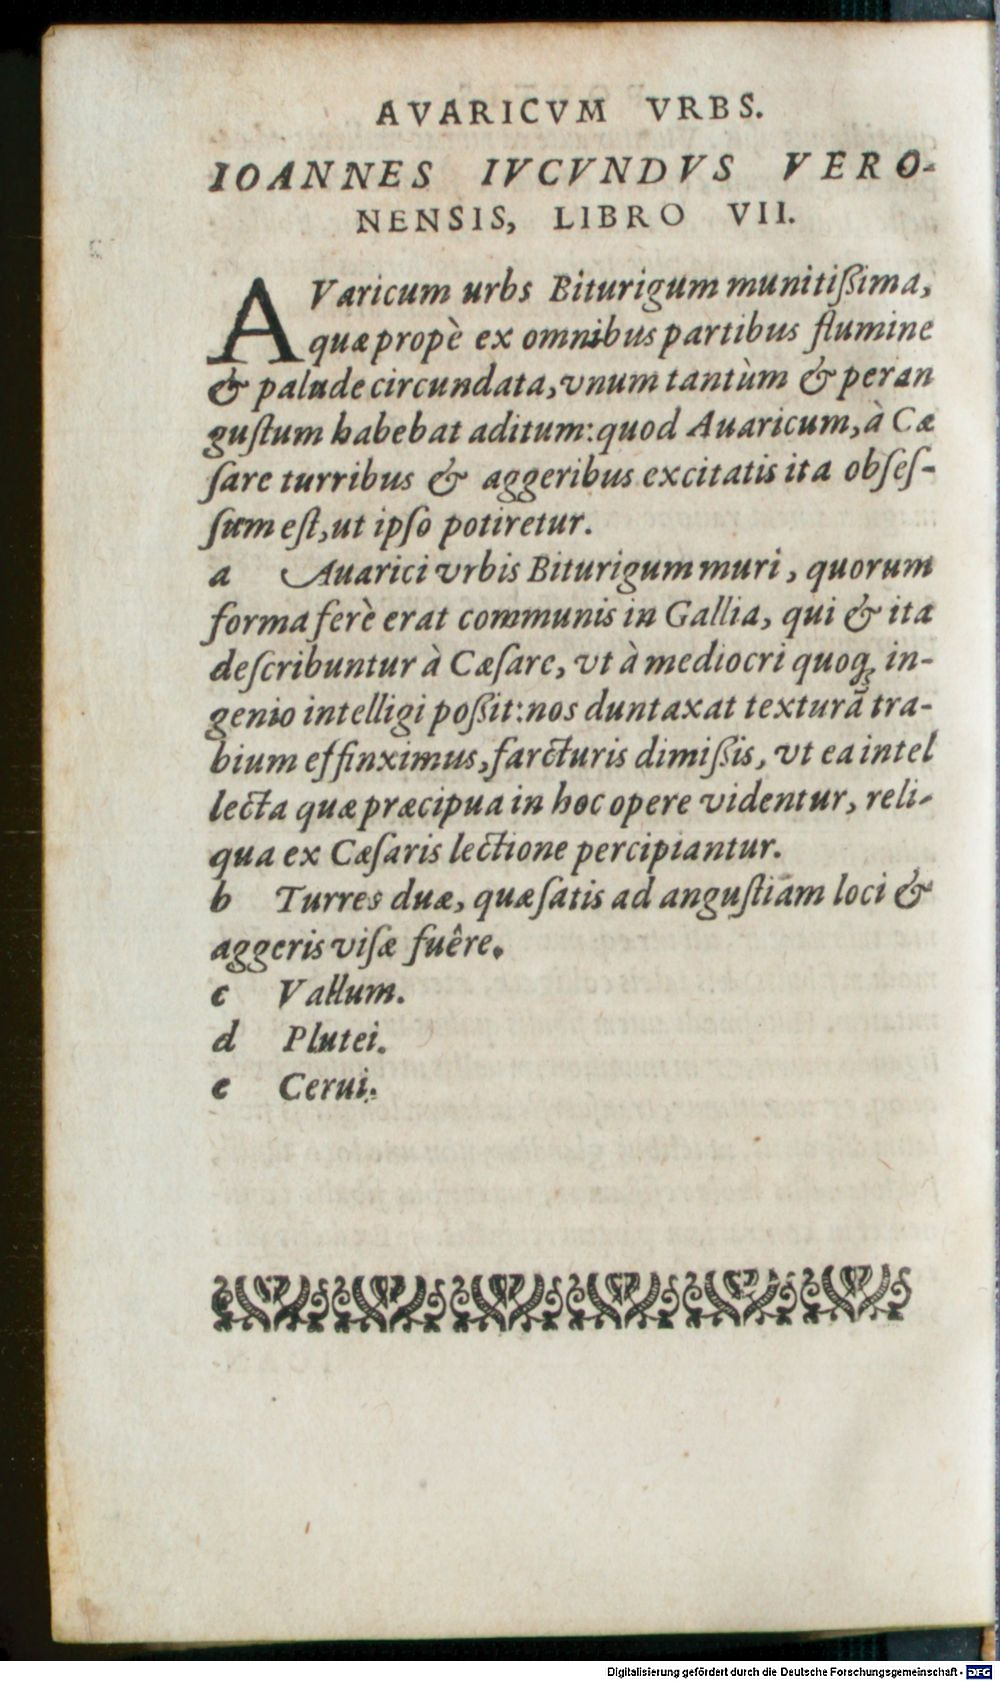 AVARICVM VRBS.
IOANNES IVCVNDVS VERO-
NENSIS, LIBRO VII.
AVaricum urbs Biturigum munitißima,
quæ propè ex omnibus partibus flumine
& palude circundata, vnum tantùm & peran
guſtum habebat aditum: quod Auaricum, à Cæ
ſare turribus & aggeribus excitatis ita obſeſ-
ſum eſt, ut ipſo potiretur.
a Auarici vrbis Biturigum muri, quorum
forma ferè erat communis in Gallia, qui & ita
deſcribuntur à Cæſare, vt à mediocri quoq; in-
genio intelligi poßit: nos duntaxat texturā tra-
bium effinximus, farcturis dimißis, vt ea intel
lecta quæ præcipua in hoc opere videntur, reli-
qua ex Cæſaris lectione percipiantur.
b Turres duæ, quæ ſatis ad anguſtiam loci &
aggeris viſæ fuêre.
c Vallum.
d Plutei.
e Cerui.
Digitalisierung gefördert durch die Deutsche Forschungsgemeinschaft - DFG